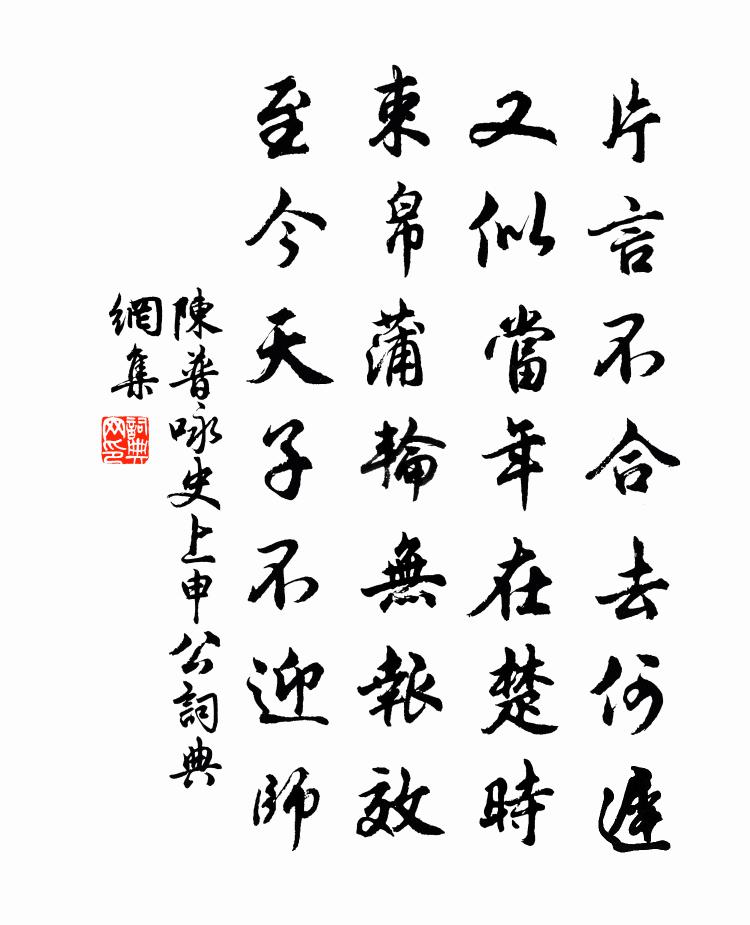 片言不合去何遲
又似當年在楚時
束帛蒲輪無報效
至今天子不迎師
陳普咏史上申公詞典
網集
詞典
网印